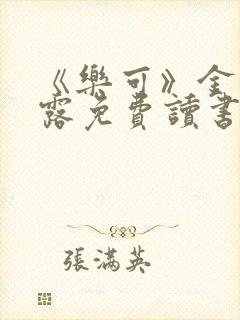 《樂可》金
露免費讀書
張滿英